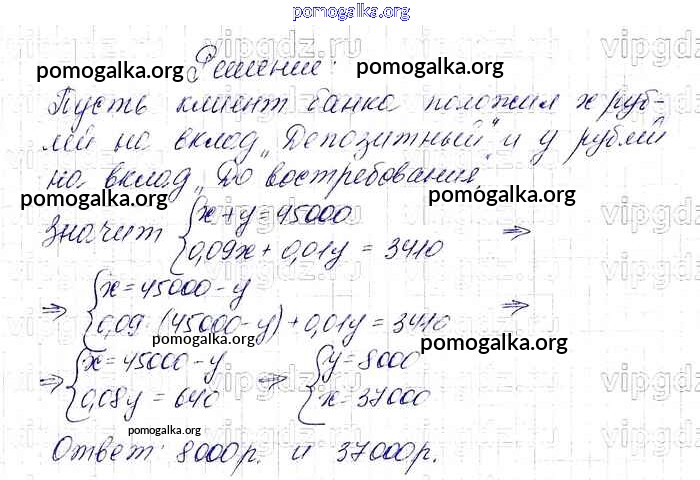 pomogalka.org
vipgdz.ru vipgdz.ru
Решение:
pomogalka.org pomogalka.org
Пусть клиент банка положил x руб-
лей на вклад „Депозитный" и y рублей
на вклад „До востребования"
pomogalka.org pomogalka.org
Значит { x+y=45000
0,09x+0,01y=3410 ⇒
⇒ { x=45000-y
0,09·(45000-y)+0,01y=3410 ⇒
pomogalka.org
⇒ { x=45000-y ⇒ { y=8000
0,08y=640 x=37000
pomogalka.org
Ответ: 8000р. и 37000р.